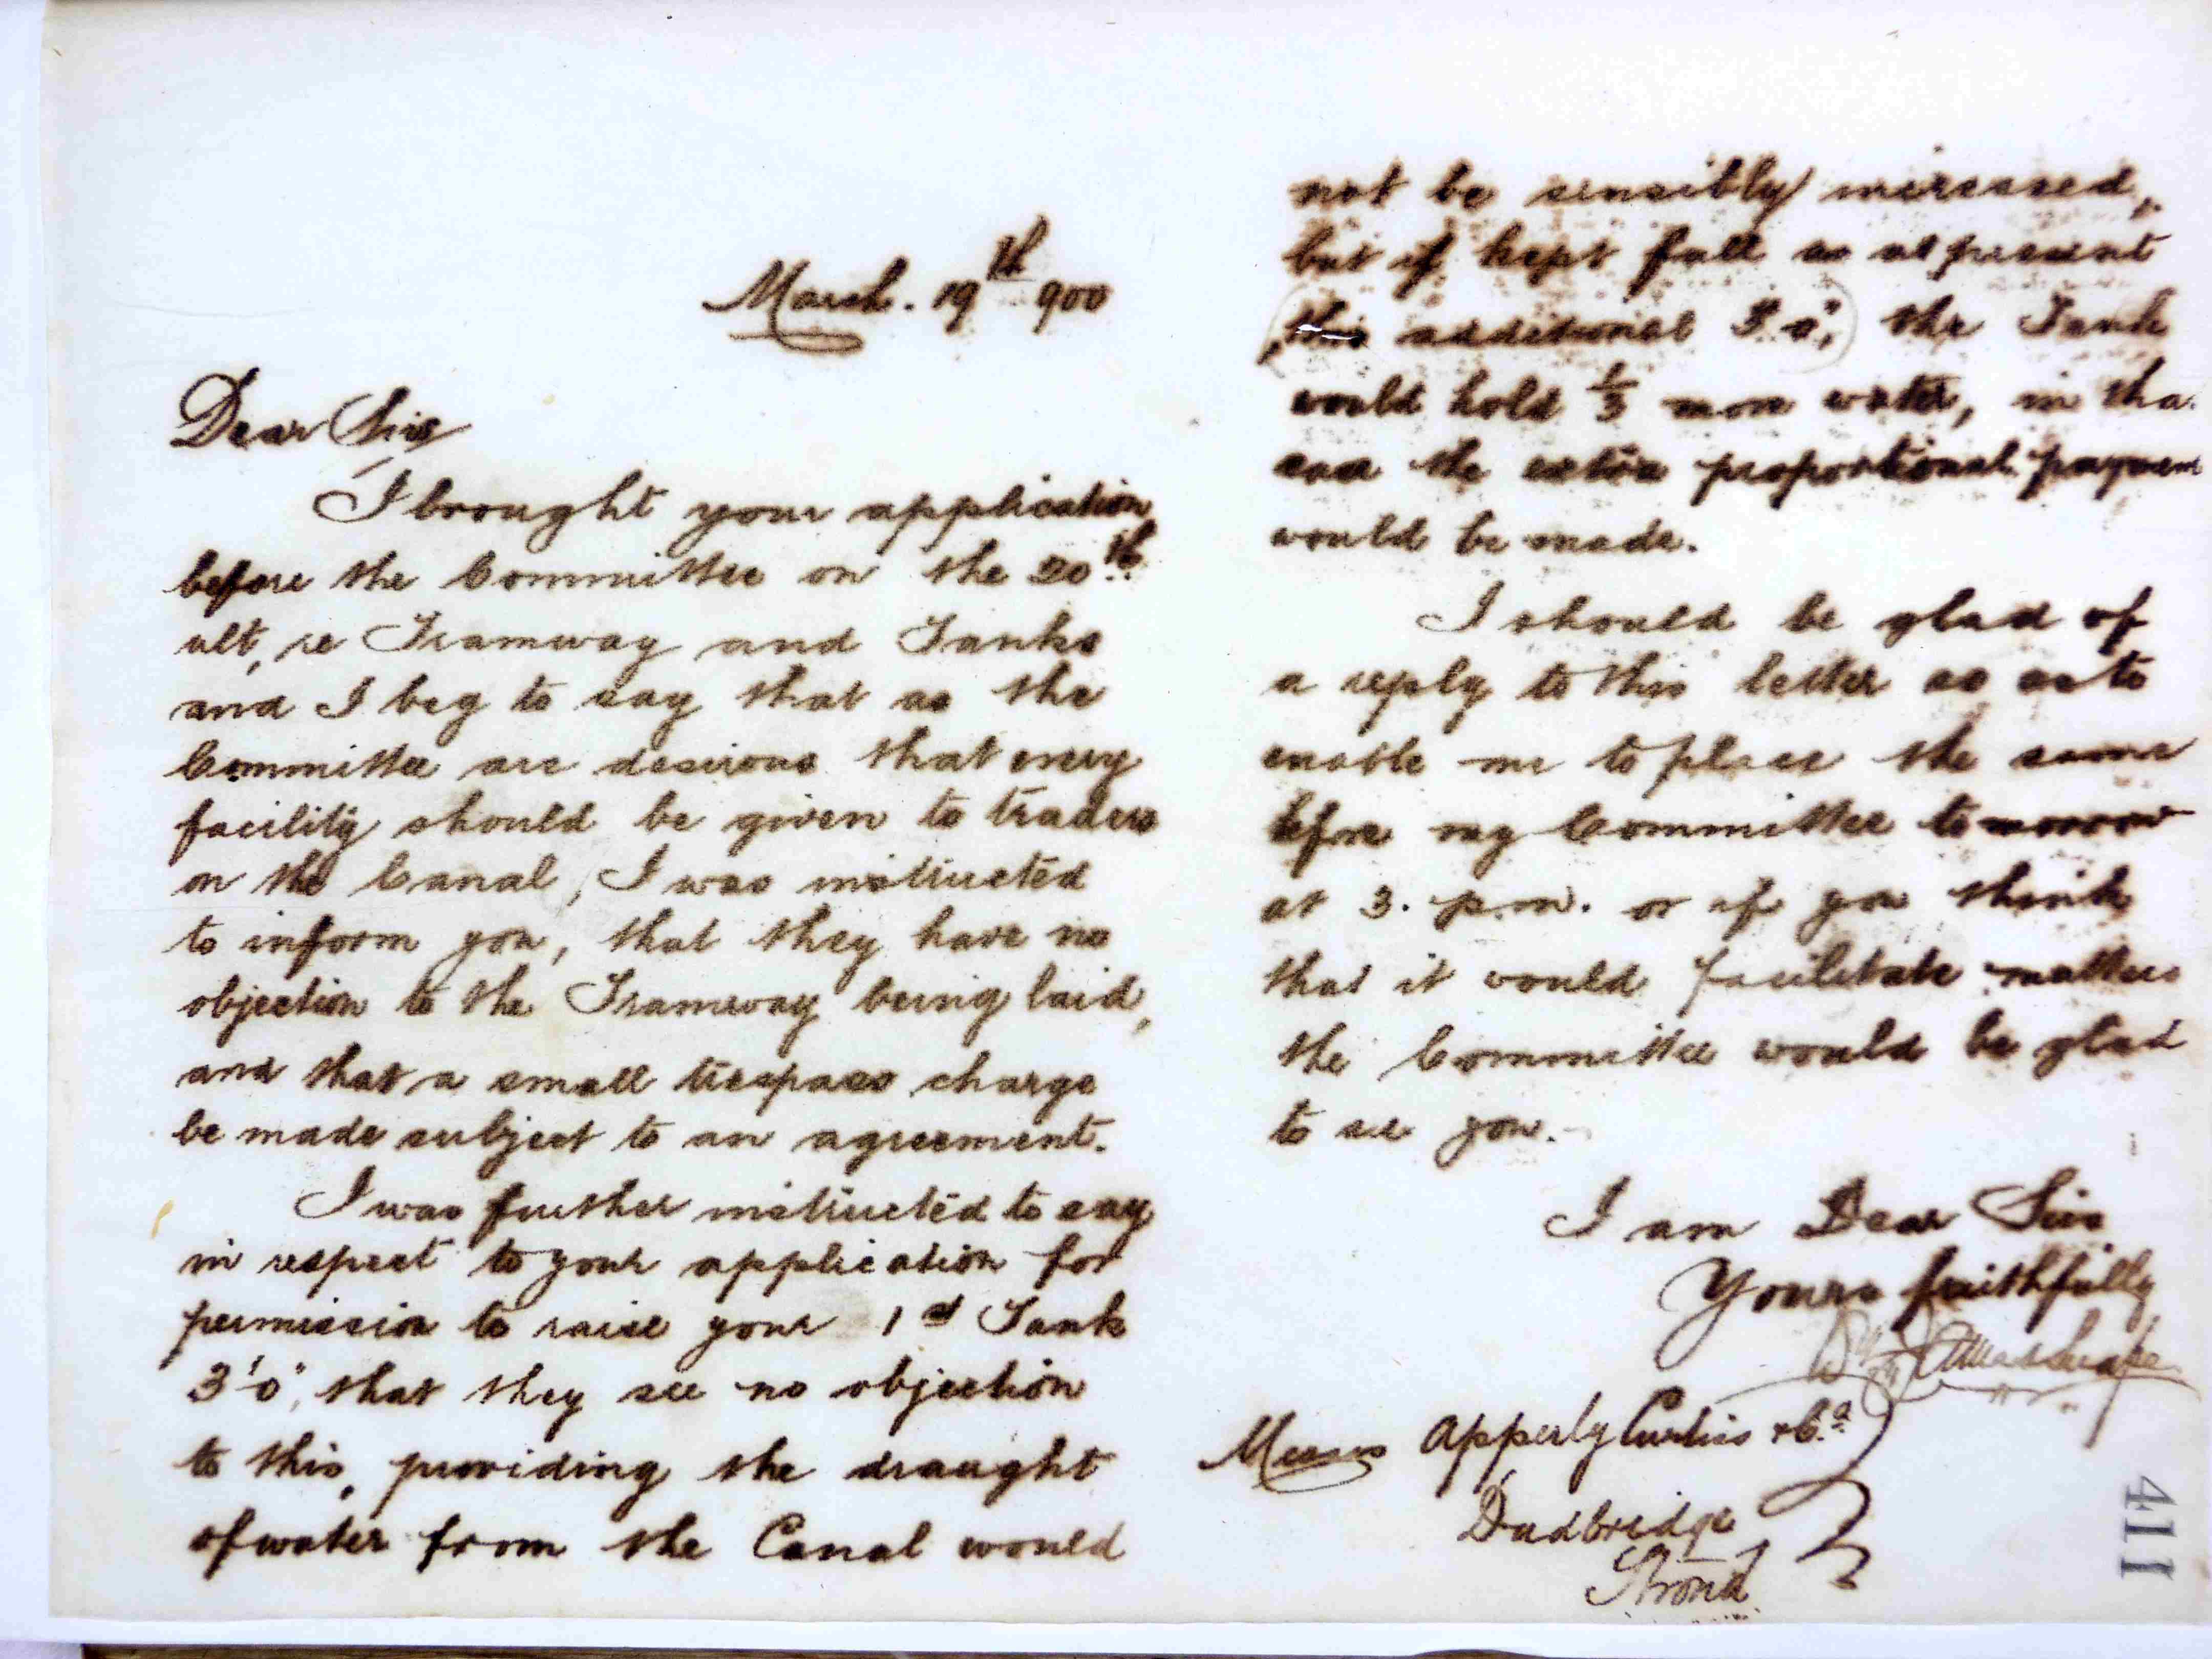 March. 19th 900
Dear Sirs
I brought your application
before the Committee on the 20th
ult, re Tramway and Tanks
and I beg to say that as the
Committee are desirous that every
facility should be given to traders
on the Canal, I was instructed
to inform you, that they have no
objection to the Tramway being laid,
and that a small trespass charge
be made subject to an agreement.
I was further instructed to say
in respect to your application for
permission to raise your 1st Tank
3'0", that they see no objection
to this, providing the draught
of water from the Canal would
not be sensibly increased,
but if kept full as at present
(this additional 3'.0",) the Tank
would hold 1/3 more water, in tha
case the extra proportional paymen
would be made.
I should be glad of
a reply to this letter so as to
enable me to place the same
before my Committee tomorrow
at 3. p.m. or if you think
that it would facilitate matters
the Committee would be glad
to see you.
I am Dear Sirs
Yours faithfully
Messrs Apperly Curtis & Co.
Dudbridge
Stroud
411